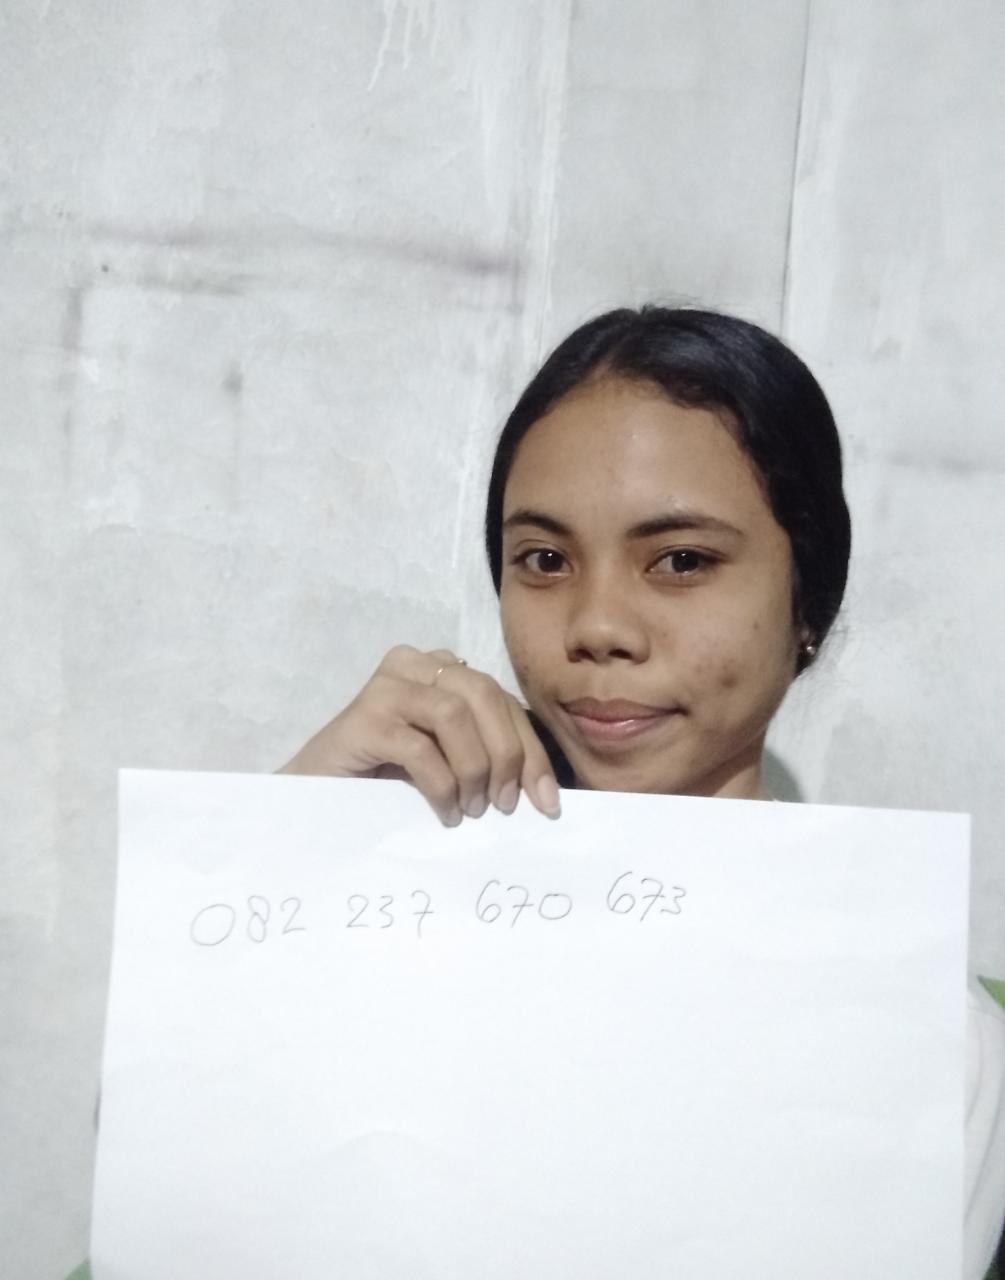 082 237 670 673